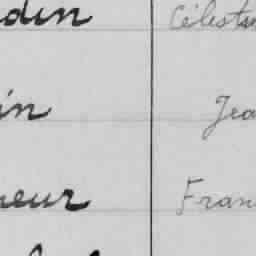 din Célestin
in Jea
neur Fran